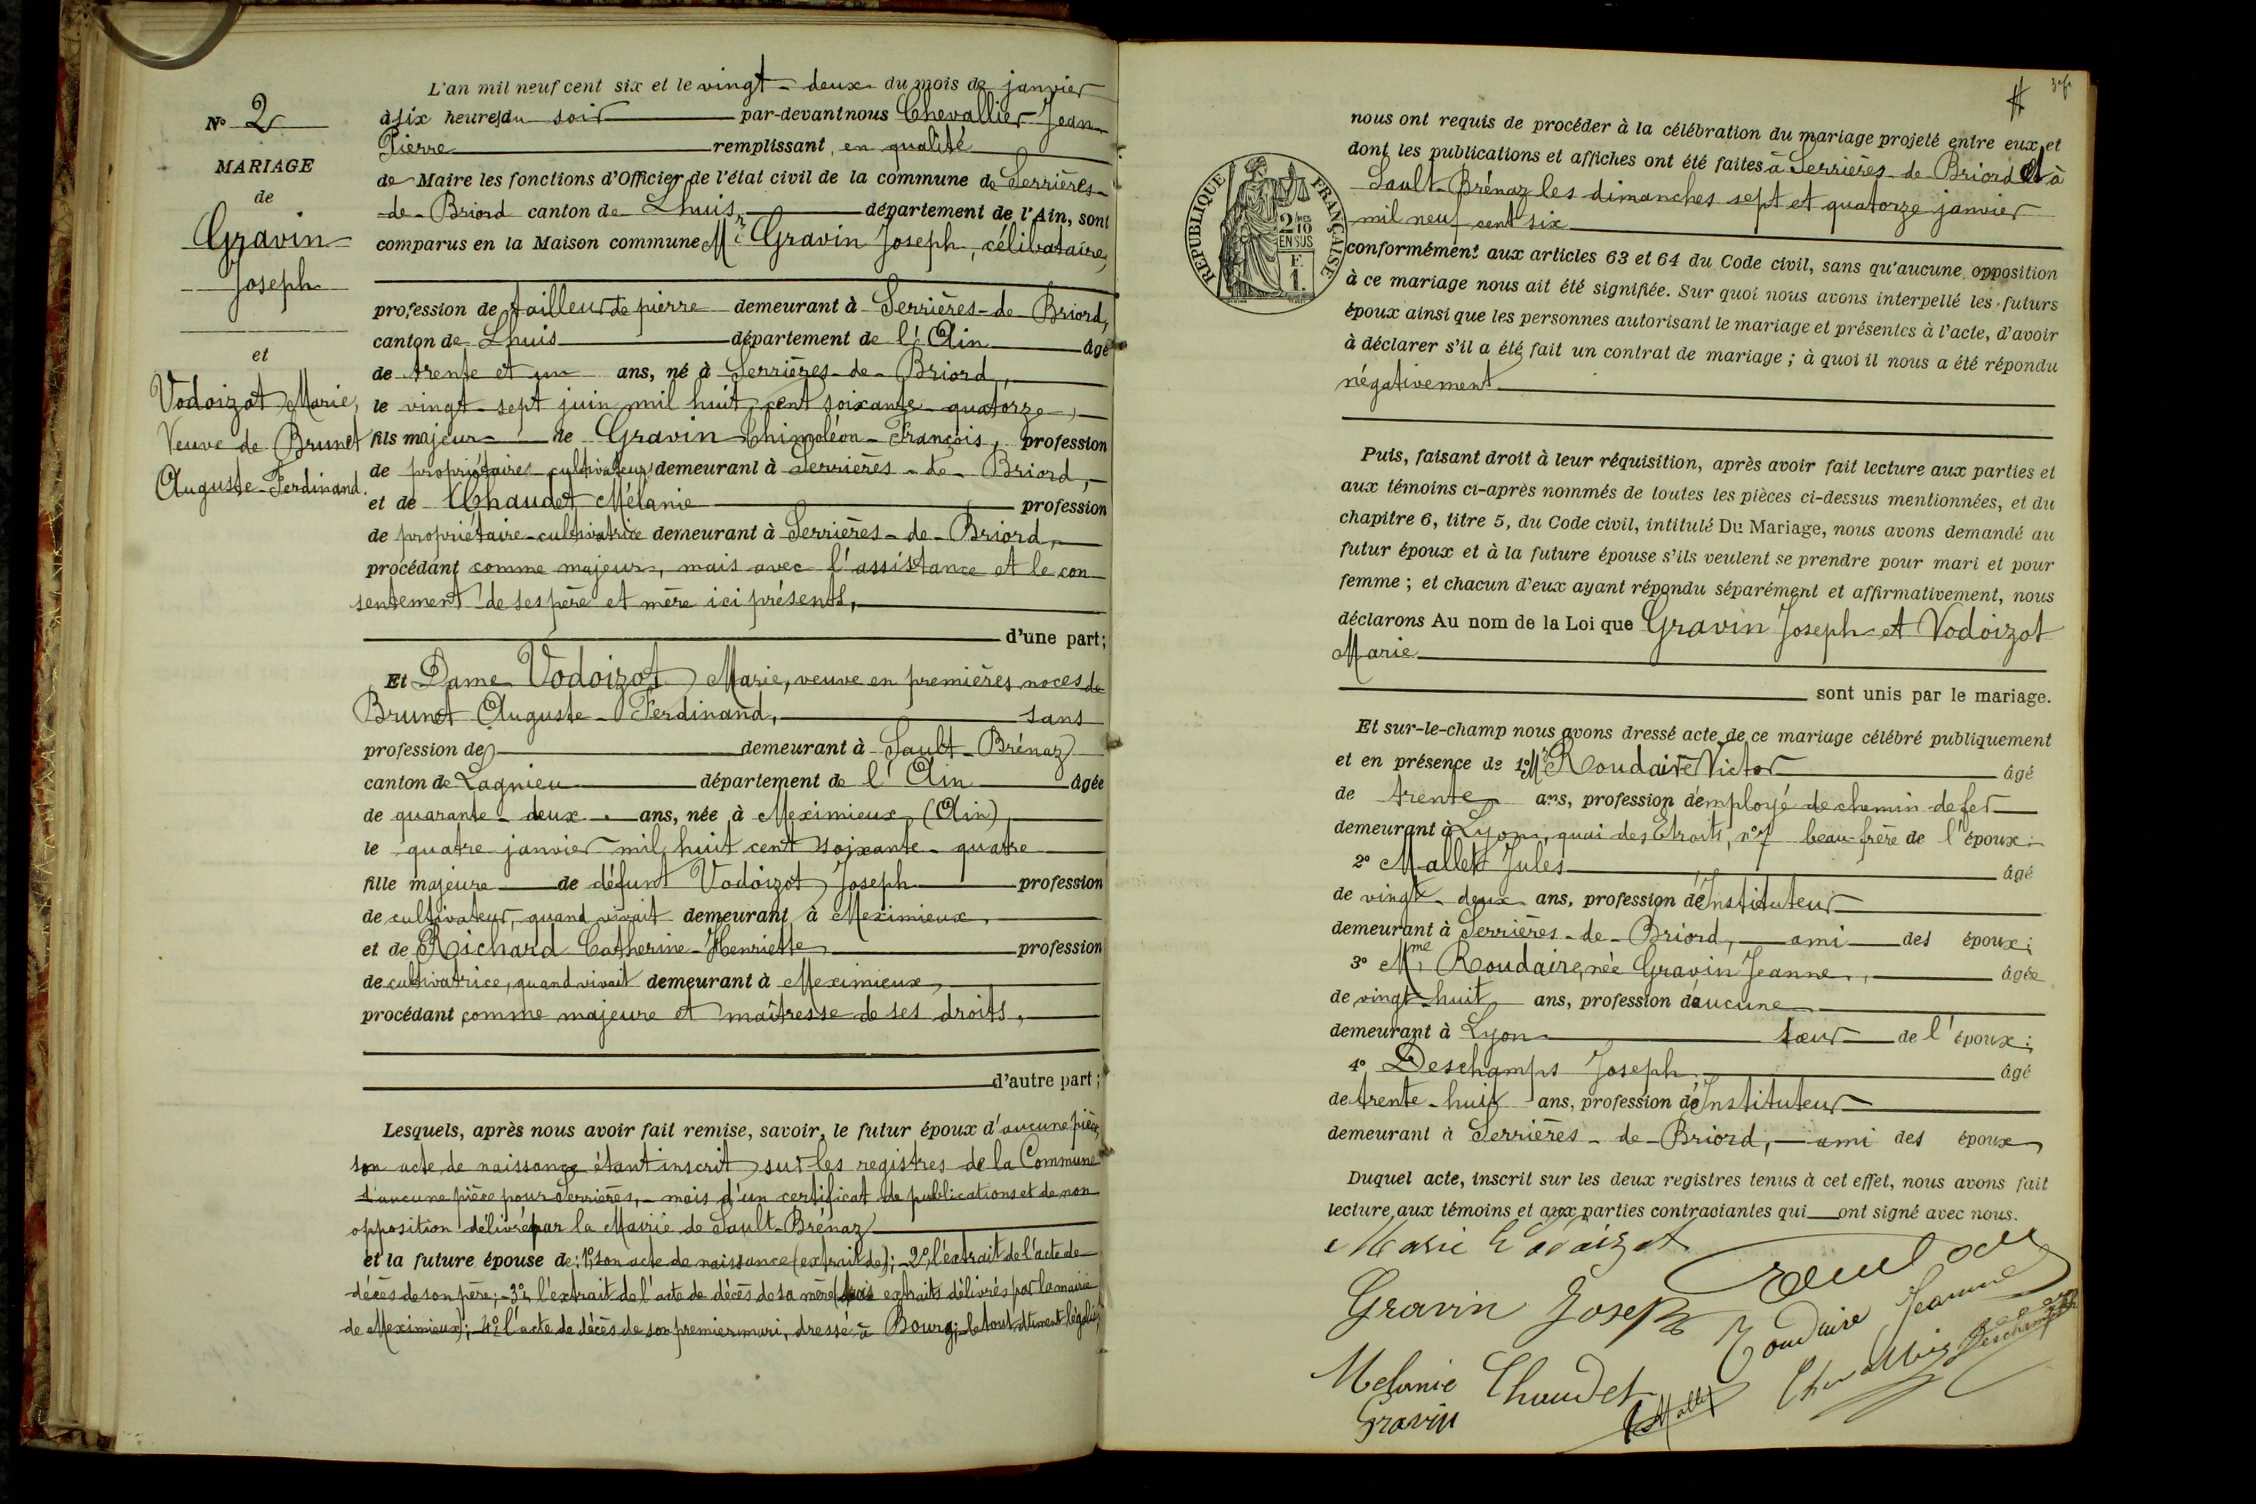 N° 2
MARIAGE
de
Gravin
Joseph
et
Vodoizot Marie,
Veuve de Brunet
Auguste-Ferdinand.
L'an mil neuf cent six et le vingt-deux du mois de janvier
à six heures du soir par-devant nous Chevallier Jean
Pierre remplissant, en qualité
de Maire les fonctions d'Officier de l'état civil de la commune de Serrières-
-de-Briord canton de Lhuis, département de l'Ain, sont
comparus en la Maison commune Mr Gravin Joseph, célibataire,
profession de tailleur de pierre demeurant à Serrières-de-Briord,
canton de Lhuis département de l'Ain âgé
de trente et un ans, né à Serrières-de-Briord,
le vingt-sept juin mil huit cent soixante-quatorze,
fils majeur de Gravin Thimoléon-François, profession
de propriétaire cultivateur demeurant à Serrières-de-Briord,
et de Chaudet Mélanie profession
de propriétaire-cultivatrice demeurant à Serrières-de-Briord,
procédant comme majeur, mais avec l'assistance et le con-
sentement de ses père et mère ici présents,
d'une part;
Et Dame Vodoizot Marie, veuve en premières noces de
Brunet Auguste-Ferdinand, sans
profession de demeurant à Sault-Brénaz
canton de Lagnieu département de l'Ain âgée
de quarante-deux ans, née à Meximieux (Ain)
le quatre janvier mil huit cent soixante-quatre
fille majeure de défunt Vodoizot Joseph profession
de cultivateur, quand vivait demeurant à Meximieux,
et de Richard Catherine-Henriette profession
de cultivatrice, quand vivait demeurant à Meximieux,
procédant comme majeure et maîtresse de ses droits,
d'autre part;
Lesquels, après nous avoir fait remise, savoir, le futur époux d'aucune pièce,
son acte de naissance étant inscrit sur les registres de la Commune
d'aucune pièce pour Serrières,- mais d'un certificat de publications et de non
opposition délivré par la Mairie de Sault-Brénaz
et la future épouse de: 1° son acte de naissance (extrait de); - 2°, l'extrait de l'acte de
décès de son père; - 3°, l'extrait de l'acte de décès de sa mère (trois extraits délivrés par la mairie
de Meximieux); 4° l'acte de décès de son premier mari, dressé à Bourg; le tout dûment légalisé,
nous ont requis de procéder à la célébration du mariage projeté entre eux et
dont les publications et affiches ont été faites à Serrières-de-Briord et à
Sault-Brénaz les dimanches sept et quatorze janvier
mil neuf cent six
RÉPUBLIQUE FRANÇAISE
2/10
EN SUS
F.
1.
conformément aux articles 63 et 64 du Code civil, sans qu'aucune opposition
à ce mariage nous ait été signifiée. Sur quoi nous avons interpellé les futurs
époux ainsi que les personnes autorisant le mariage et présentes à l'acte, d'avoir
à déclarer s'il a été fait un contrat de mariage; à quoi il nous a été répondu
négativement
Puis, faisant droit à leur réquisition, après avoir fait lecture aux parties et
aux témoins ci-après nommés de toutes les pièces ci-dessus mentionnées, et du
chapitre 6, titre 5, du Code civil, intitulé Du Mariage, nous avons demandé au
futur époux et à la future épouse s'ils veulent se prendre pour mari et pour
femme; et chacun d'eux ayant répondu séparément et affirmativement, nous
déclarons Au nom de la Loi que Gravin Joseph et Vodoizot
Marie
sont unis par le mariage.
Et sur-le-champ nous avons dressé acte de ce mariage célébré publiquement
et en présence de 1° Mr Roudaire Victor âgé
de trente ans, profession d'employé de chemin de fer
demeurant à Lyon, quai des Etroits, n° 7 beau-frère de l'époux;
2° Mallet Jules âgé
de vingt-deux ans, profession d'Instituteur
demeurant à Serrières-de-Briord, ami des époux;
3° Mme Roudaire, née Gravin Jeanne, âgée
de vingt-huit ans, profession d'aucune
demeurant à Lyon sœur de l'époux;
4° Deschamps Joseph âgé
de trente-huit ans, profession d'Instituteur
demeurant à Serrières-de-Briord, ami des époux
Duquel acte, inscrit sur les deux registres tenus à cet effet, nous avons fait
lecture aux témoins et aux parties contractantes qui ont signé avec nous.
Marie Vodoizot
Gravin Joseph
Roudaire Jeanne
Melanie Chaudet
Chevallier
Deschamps
Gravin
Mallet